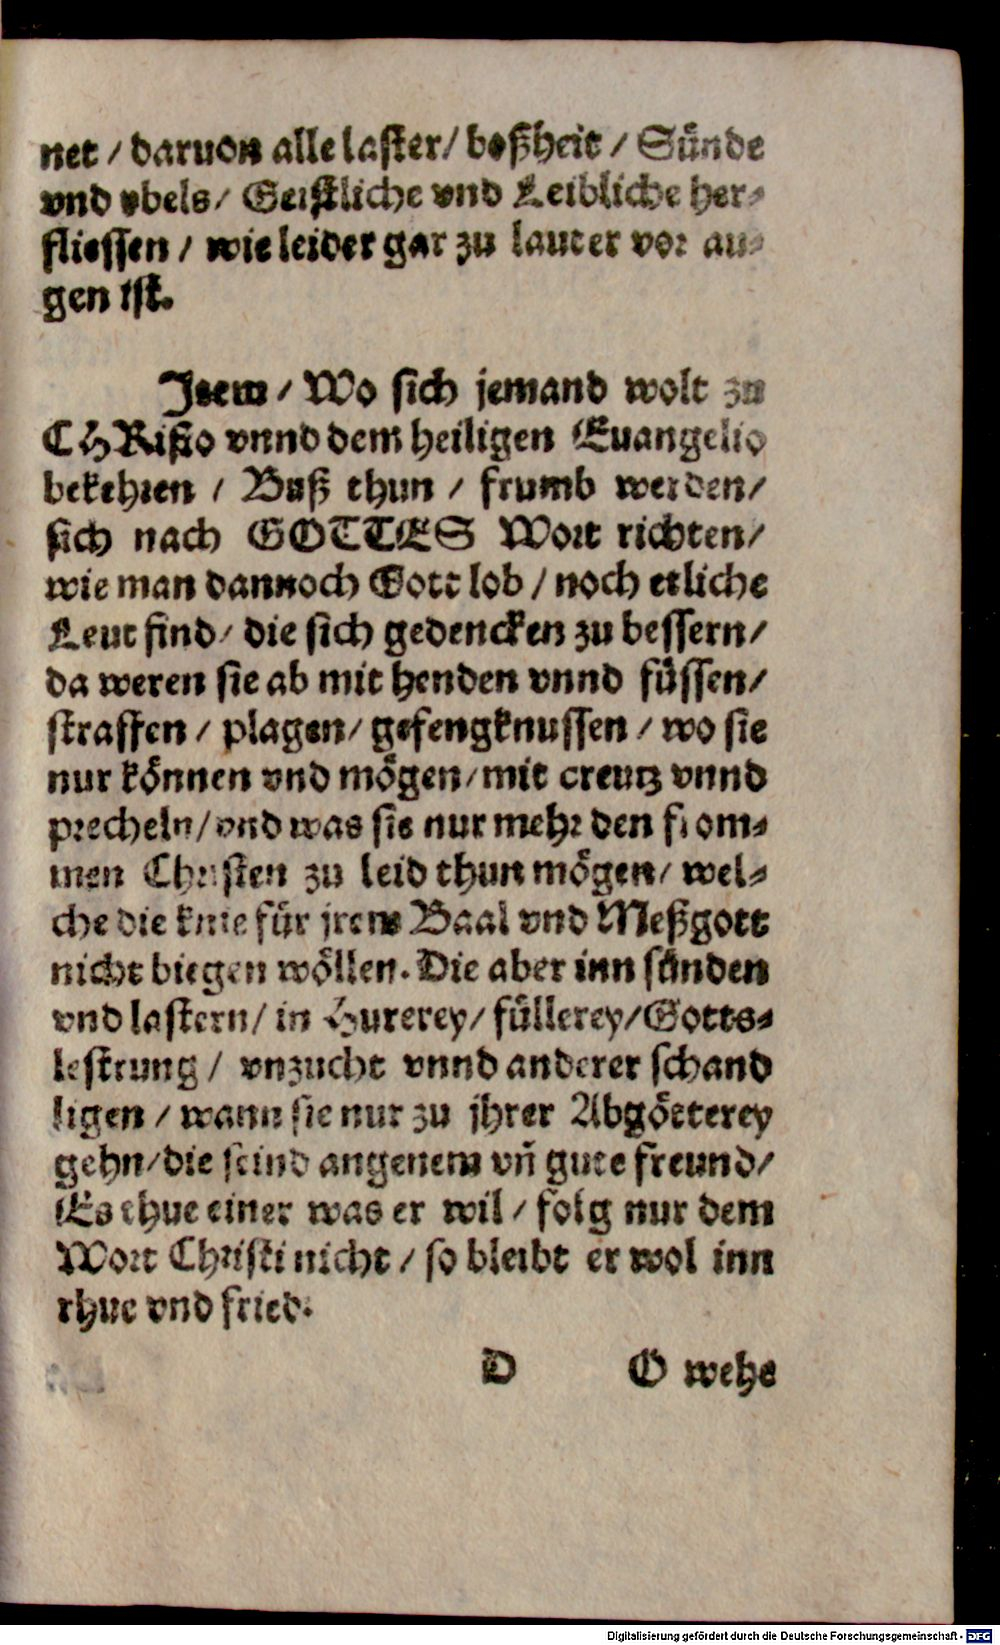 net / daruon alle laster / boßheit / Sünde
vnd vbels / Geistliche vnd Leibliche her-
fliessen / wie leider gar zu lauter vor au-
gen ist.
Item / Wo sich jemand wolt zu
CHRisto vnnd dem heiligen Euangelio
bekehren / Buß thun / frumb werden /
sich nach GOTTES Wort richten /
wie man dannoch Gott lob / noch etliche
Leut sind / die sich gedencken zu bessern /
da weren sie ab mit henden vnnd füssen /
straffen / plagen / gefengknussen / wo sie
nur können vnd mögen / mit creutz vnnd
precheln / vnd was sie nur mehr den from-
men Christen zu leid thun mögen / wel-
che die knie für jrem Baal vnd Meßgott
nicht biegen wöllen. Die aber inn sünden
vnd lastern / in Hurerey / füllerey / Gotts-
lestrung / vnzucht vnnd anderer schand
ligen / wann sie nur zu jhrer Abgötterey
gehn / die seind angenem vñ gute freund /
Es thue einer was er wil / folg nur dem
Wort Christi nicht / so bleibt er wol inn
rhue vnd fried.
D O wehe
Digitalisierung gefördert durch die Deutsche Forschungsgemeinschaft - DFG